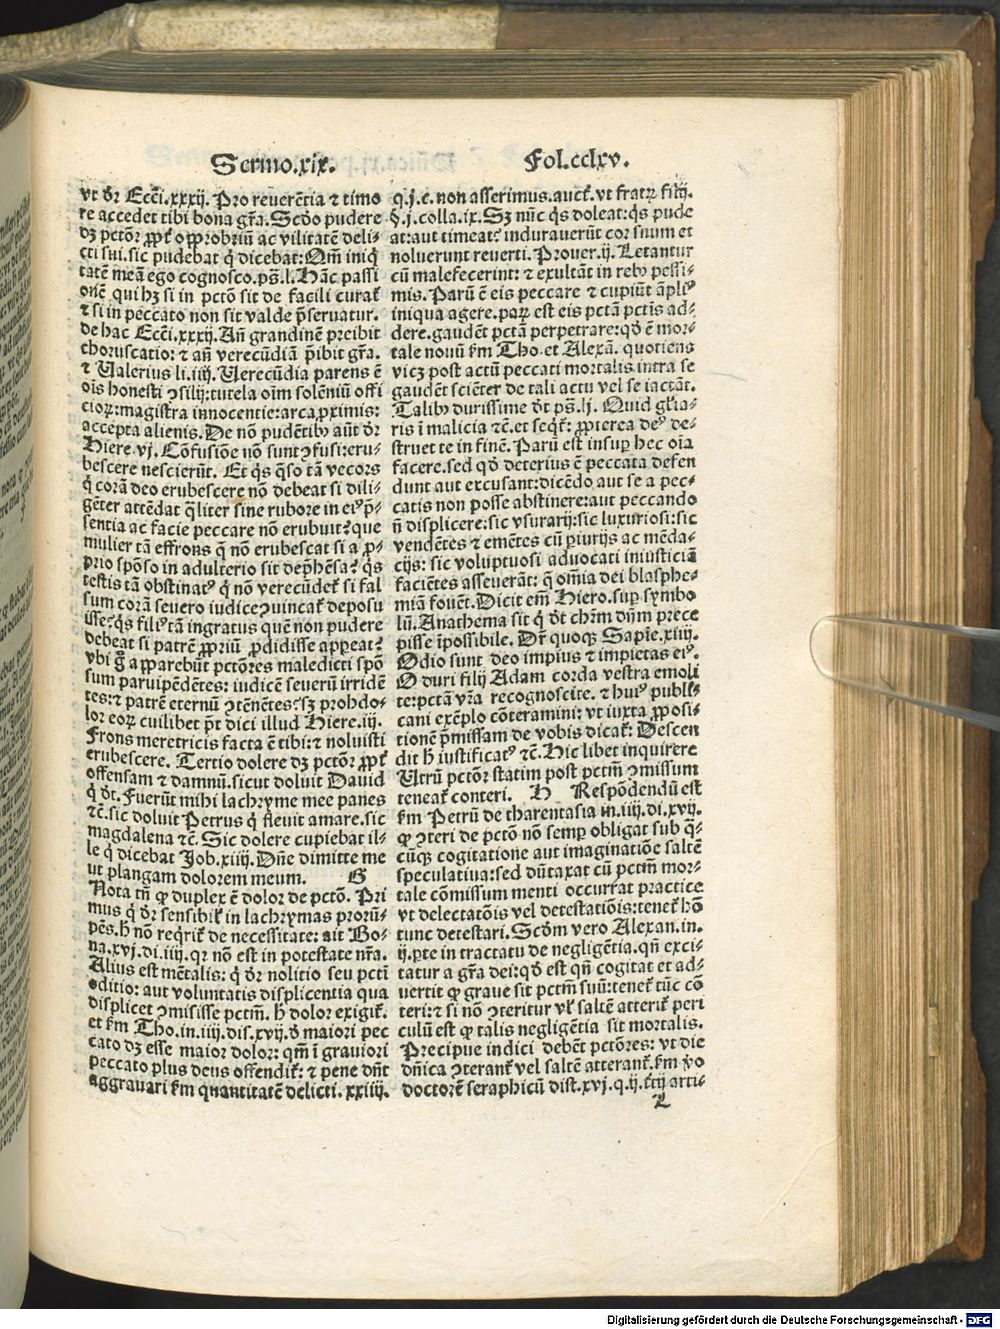 Sermo.xix. Fol.cclxv.
vt dr̃ Ecc̃i.xxxij. Pro reuerẽtia ⁊ timo
re accedet tibi bona gr̃a. Scd̃o pudere
dꝫ pctõr ꝓpt̃ opprobriũ ac vilitatẽ deli-
cti sui. sic pudebat q̃ dicebat: Qm̃ iniq̃
tatẽ meã ego cognosco. ps̃. l. Hãc passi
onẽ qui hꝫ si in pctõ sit de facili curat̃
⁊ si in peccato non sit valde p̃seruatur.
de hac Ecc̃i.xxxij. Añ grandinẽ preibit
choruscatio: ⁊ añ verecũdiã p̃ibit gr̃a.
⁊ Valerius li.iiij. Verecũdia parens ẽ
oĩs honesti ↄsilij: tutela oĩm solẽniũ offi
cioꝝ: magistra innocentie: arca ꝓximis:
accepta alienis. De nõ pudẽtibꝰ aũt dr̃
Hiere.vj. Cõfusiõe nõ sunt ↄfusi: eru-
bescere nescierũt. Et q̃s q̃so tã vecors
q̃ corã deo erubescere nõ debeat si dili-
gẽter attẽdat q̃liter sine rubore in eiꝰ p̃-
sentia ac facie peccare nõ erubuit? que
mulier tã effrons q̃ nõ erubescat si a ꝓ-
prio spõso in adulterio sit dep̃hẽsa? q̃s
testis tã obstinatꝰ q̃ nõ verecũdet̃ si fal
sum corã seuero iudice ↄuincat̃ deposu
isse? q̃s filiꝰ tã ingratus quẽ non pudere
debeat si patrẽ ꝓpriũ ꝓdidisse appeat?
vbi g̃ apparebũt pctõres maledicti spõ
sum paruipẽdẽtes: iudicẽ seuerũ irridẽ
tes: ⁊ patrẽ eternũ ↄtẽnẽtes? sꝫ prohdo-
lor eoꝝ cuilibet p̃t dici illud Hiere.iij.
Frons meretricis facta ẽ tibi: ⁊ noluisti
erubescere. Tertio dolere dꝫ pctõr ꝓpt̃
offensam ⁊ damnũ. sicut doluit Dauid
q̃ dt̃. Fuerũt mihi lachryme mee panes
⁊c̃. sic doluit Petrus q̃ fleuit amare. sic
magdalena ⁊c̃. Sic dolere cupiebat il-
le q̃ dicebat Job.xiiij. Dñe dimitte me
ut plangam dolorem meum. G
Nota tñ ꝙ duplex ẽ dolor de pctõ. Pri
mus q̃ dr̃ sensibil̃ in lachrymas prorũ-
pẽs. h̃ nõ req̃rit̃ de necessitate: ait Bo-
na.xvj.di.iiij. qr nõ est in potestate nr̃a.
Alius est mẽtalis: q̃ dr̃ nolitio seu pctĩ
oditio: aut voluntatis displicentia qua
displicet ↄmisisse pctm̃. h̃ dolor exigit̃.
et fm̃ Tho. in.iiij.dis.xvij. d̃ maiori pec
cato dꝫ esse maior dolor: qm̃ ĩ grauiori
peccato plus deus offendit̃: ⁊ pene dñt
aggrauari fm̃ quantitatẽ delicti.xxiiij.
q.j.c. non afferimus. auct̃. vt fratrꝝ filij.
§.j.colla.ix. Sꝫ nũc q̃s doleat: q̃s pude
at: aut timeat? indurauerũt cor suum et
noluerunt reuerti. Prouer.ij. Letantur
cũ malefecerint: ⁊ exultãt in rebꝰ pessi-
mis. Parũ ẽ eis peccare ⁊ cupiũt ãpliꝰ
iniqua agere. paꝝ est eis pctã pctĩs ad-
dere. gaudẽt pctã perpetrare: qd̃ ẽ mor-
tale nouũ fm̃ Tho. et Alexã. quotiens
vicꝫ post actũ peccati mortalis intra se
gaudẽt sciẽter de tali actu vel se iactãt.
Talibꝰ durissime dt̃ ps̃. lj. Quid gl̃ia-
ris ĩ malicia ⁊c̃. et seqt̃: ꝓpterea deꝰ de-
struet te in finẽ. Parũ est insuꝑ hec oĩa
facere. sed qd̃ deterius ẽ peccata defen
dunt aut excusant: dicẽdo aut se a pec-
catis non posse abstinere: aut peccando
ñ displicere: sic vsurarij: sic luxuriosi: sic
vendẽtes ⁊ emẽtes cũ ꝑiurijs ac mẽda-
cijs: sic voluptuosi aduocati iniusticiã
faciẽtes asseuerãt: q̃ om̃ia dei blasphe-
miã fouẽt. Dicit em̃ Hiero. suꝑ symbo
lũ. Anathema sit q̃ dt̃ chr̃m dñm prece
pisse ĩpossibile. Dr̃ quoqꝫ Sapie.xiiij.
Odio sunt deo impius ⁊ impietas eiꝰ.
O duri filij Adam corda vestra emoli
te: pctã vr̃a recognoscite. ⁊ huiꝰ publi-
cani exẽplo cõteramini: vt iuxta ꝓposi-
tionẽ p̃missam de vobis dicat̃: Descen
dit h̃ iustificatꝰ ⁊c̃. Hic libet inquirere
Vtrũ pctõr statim post pctm̃ ↄmissum
teneat̃ conteri. H Respõdendũ est
fm̃ Petrũ de tharentasia in.iiij.di.xvij.
ꝙ ↄteri de pctõ nõ semꝑ obligat sub q̃-
cũqꝫ cogitatione aut imaginatiõe saltẽ
speculatiua: sed dũtaxat cũ pctm̃ mor-
tale cõmissum menti occurrat practice
vt delectatõis vel detestatiõis: tenet̃ hõ
tunc detestari. Scd̃m vero Alexan. in.
ij.ꝑte in tractatu de negligẽtia. qñ exci-
tatur a gr̃a dei: qd̃ est qñ cogitat et ad-
uertit ꝙ graue sit pctm̃ suũ: tenet̃ tũc cõ
teri: ⁊ si nõ ↄteritur vl̃ saltẽ atterit̃ peri
culũ est ꝙ talis negligẽtia sit mortalis.
Precipue indici debẽt pctõres: vt die
dñica ↄterant̃ vel saltẽ atterant̃. fm̃ vo
doctorẽ seraphicũ dist.xvj.q.ij. arti-
L
Digitalisierung gefördert durch die Deutsche Forschungsgemeinschaft - DFG